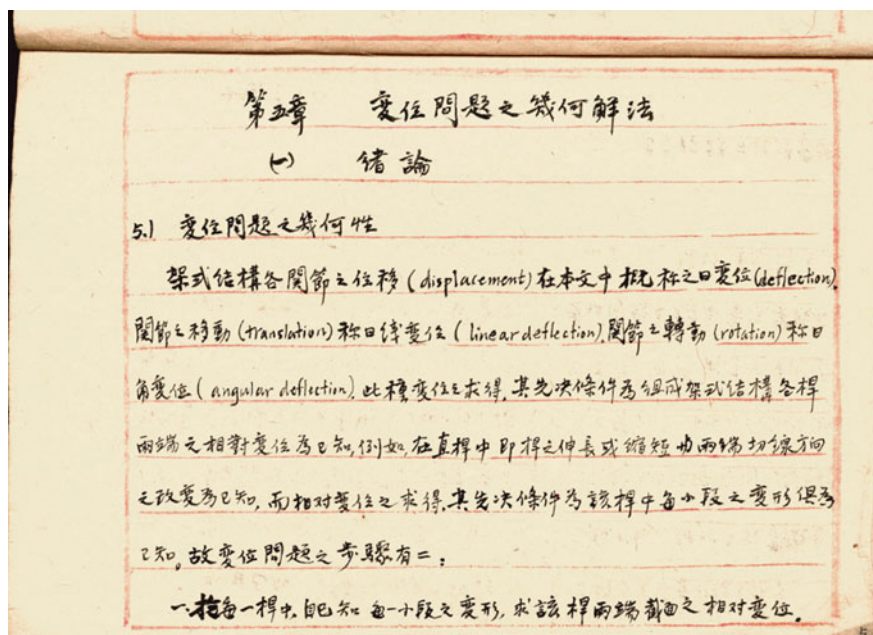 第五章 変位問題之幾何解法
(一) 緒論
5.1 変位問題之幾何性
架式结構各関節之位移(displacement)在本文中概称之曰変位(deflection).
関節之移動(translation)称曰线変位(linear deflection).関節之轉動(rotation)称曰
角変位(angular deflection).此種変位之求得,其先决條件為组成架式结構各桿
両端之相對変位為已知,例如,在直桿中即桿之伸長或缩短 両端切線方向
之改変為已知,而相对変位之求得,其先决條件為該桿中每小段之変形俱為
已知,故変位問題之步驟有二:
一.在每一桿中,自已知每一小段之変形,求該桿両端截面之相对変位.